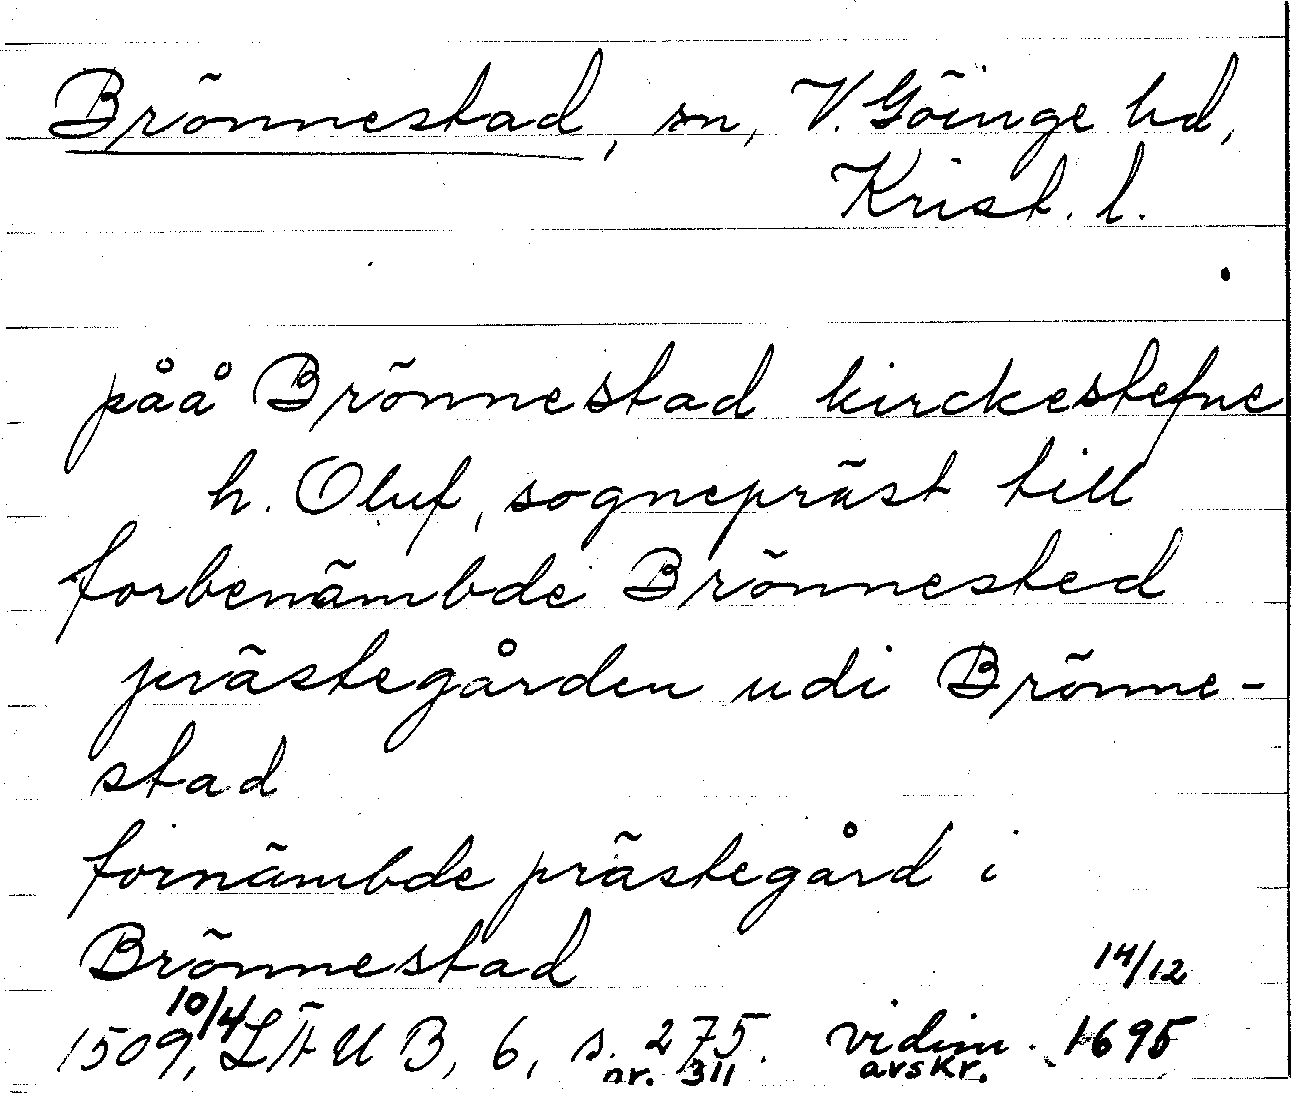 Brönnestad, sn, V. Göinge hd,
Krist. l.
påå Brönnestad kirckestefne
h. Oluf, sognepräst till
forbenämbde Brönnested
prästegården udi Brönne-
stad
fornämbde prästegård i
Brönnestad
14/12
10/4
1509, LÄUB, 6, s. 275. vidim. 1695
nr. 311 avskr.